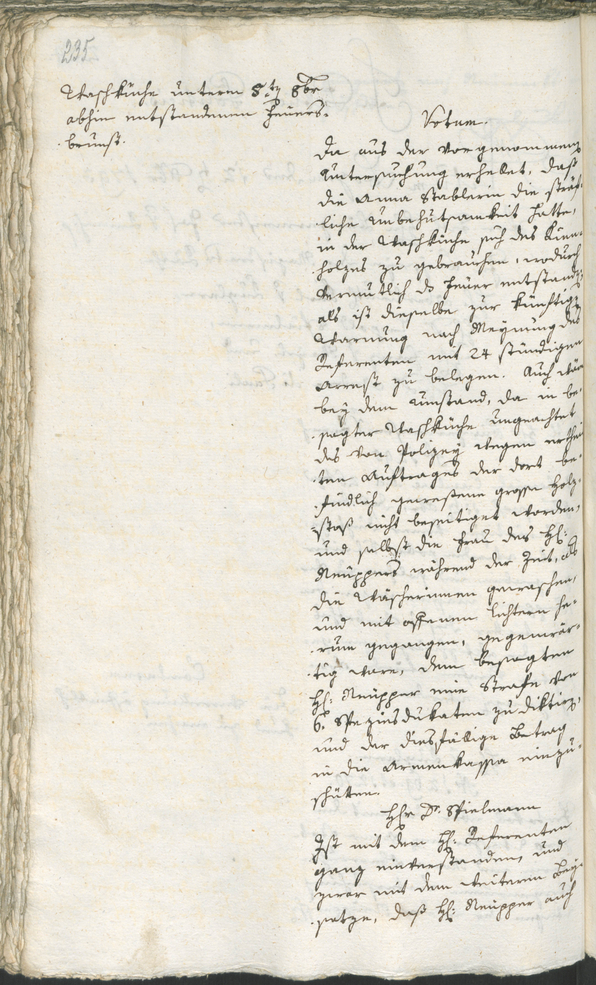 235
Waschküche unterm 5. 8br
abhin entstandenen Feuers-
brunst.
Votum.
Da aus der vorgenommenen
Untersuchung erhellet, daß
die Anna Stablerin die sträf-
liche Unbehutsamkeit hatte,
in der Waschküche sich des Kien-
holzes zu gebrauchen, wodurch
vermutlich das Feuer entstand,
als ist dieselbe zur künftigen
Warnung nach Meynung des
Referenten mit 24 stündigen
Arrest zu belegen. Auch wäre
bey dem Umstand, da in be-
sagter Waschküche ungeachtet
des von Polizey wegen erthei-
ten Auftrages der dort be-
findlich gewesene grosse Holz-
stoß nicht beseitiget worden,
und selbst die Frau des H:
Neupper während der Zeit, als
die Wäscherinnen gewaschen,
und mit offenen Lichtern he-
rum gegangen, gegenwär-
tig ware, dem besagten
H: Neupper eine Strafe von
6. Speziesdukaten zu diktiren,
und der diesfällige Betrag
in die Armenkassa einzu-
schütten.
Hhr Dr. Spielmann
Ist mit dem H: Referenten
ganz einverstanden, und
zwar mit dem weitern Bey-
satze, daß H: Neupper auch